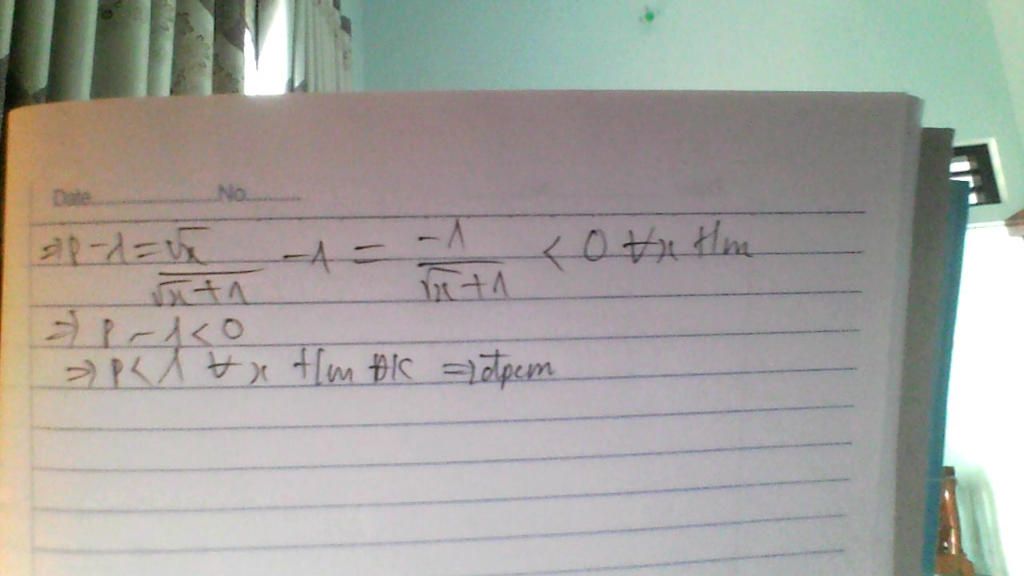 Date............No........
⇒ P - 1 = √x/(√x+1) - 1 = -1/(√x+1) < 0 ∀x t/m
⇒ P - 1 < 0
⇒ P < 1 ∀x t/m ĐK ⇒ đpcm